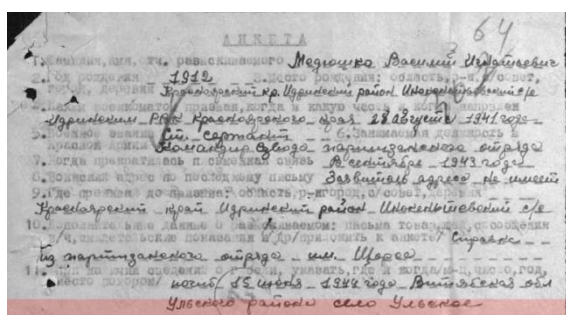 64
АНКЕТА
1. Фамилия, имя, отч. разыскиваемого Медюшко Василий Игнатьевич
2. Год рождения 1912 3. Место рождения: область, р-н, с/совет,
город, деревня Красноярский кр. Идринский район Иннокентьевский с/с
4. Каким военкоматом призван, когда и какую часть и когда направлен
Идринским РВК Красноярского края 28 августа 1941 года
5. Военное звание Ст. сержант 6. Занимаемая должность в
Красной Армии Командир взвода партизанского отряда
7. Когда прекратилась письменная связь В сентябре 1943 года
8. Воинский адрес по последнему письму Заявитель адреса не имеет
9. Где проживал до призыва: область, р-н, город, с/совет, деревня
Красноярский край Идринский район Иннокентьевский с/с
10. Дополнительные данные о разыскиваемом: письма товарищей, сообщения
в/ч, свидетельские показания и др/приложить к анкете/ Справка
из партизанского отряда им. Щорса
11. При наличии сведений о гибели, указать, где и когда/м-ц, число, год,
место похорон/ погиб 15 июня 1944 года Витебская обл
Ульского района село Ульское